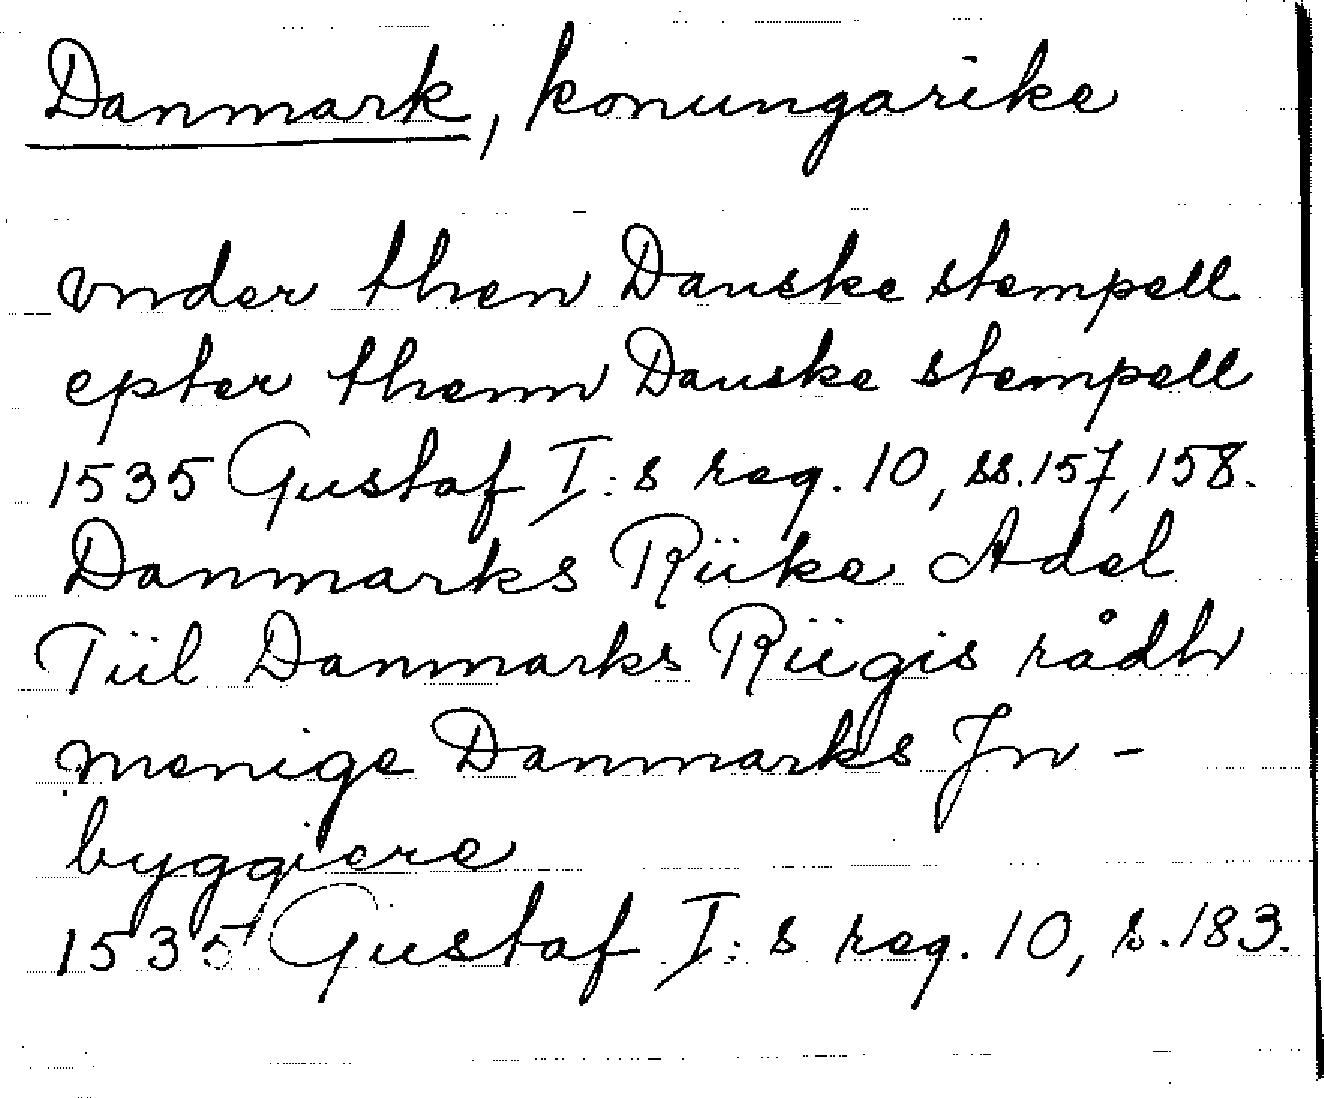 Danmark, konungarike
vnder then Danske stempell
epter thenn Danske stempell
1535 Gustaf I:s reg. 10, ss. 157, 158.
Danmarks Rüke Adel
Tüil Danmarks Rüegis rådh
menige Danmarks Jn-
byggiere
1535 Gustaf I:s reg. 10, s. 183.